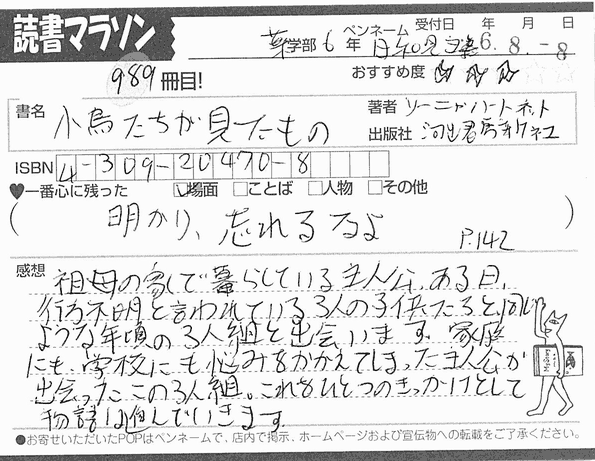 読書マラソン
ペンネーム 受付日 年 月 日
薬学部 6年 日和見 6.8.-8
989冊目!
おすすめ度 ☆☆☆
書名 小鳥たちが見たもの
著者 ソーニャハートネット
出版社 河出書房新社
ISBN 4-309-20470-8
♥一番心に残った ☑場面 □ことば □人物 □その他
(明かり、忘れるなよ P.142)
感想
祖母の家で暮らしている主人公。ある日、
行方不明と言われている3人の子供たちと同じ
ような年頃の3人組と出会います。家庭
にも学校にも悩みをかかえてしまった主人公が
出会ったこの3人組。これをひとつのきっかけとして
物語は進んでいきます。
●お寄せいただいたPOPはペンネームで、店内で掲示、ホームページおよび宣伝物への転載をご了承ください。